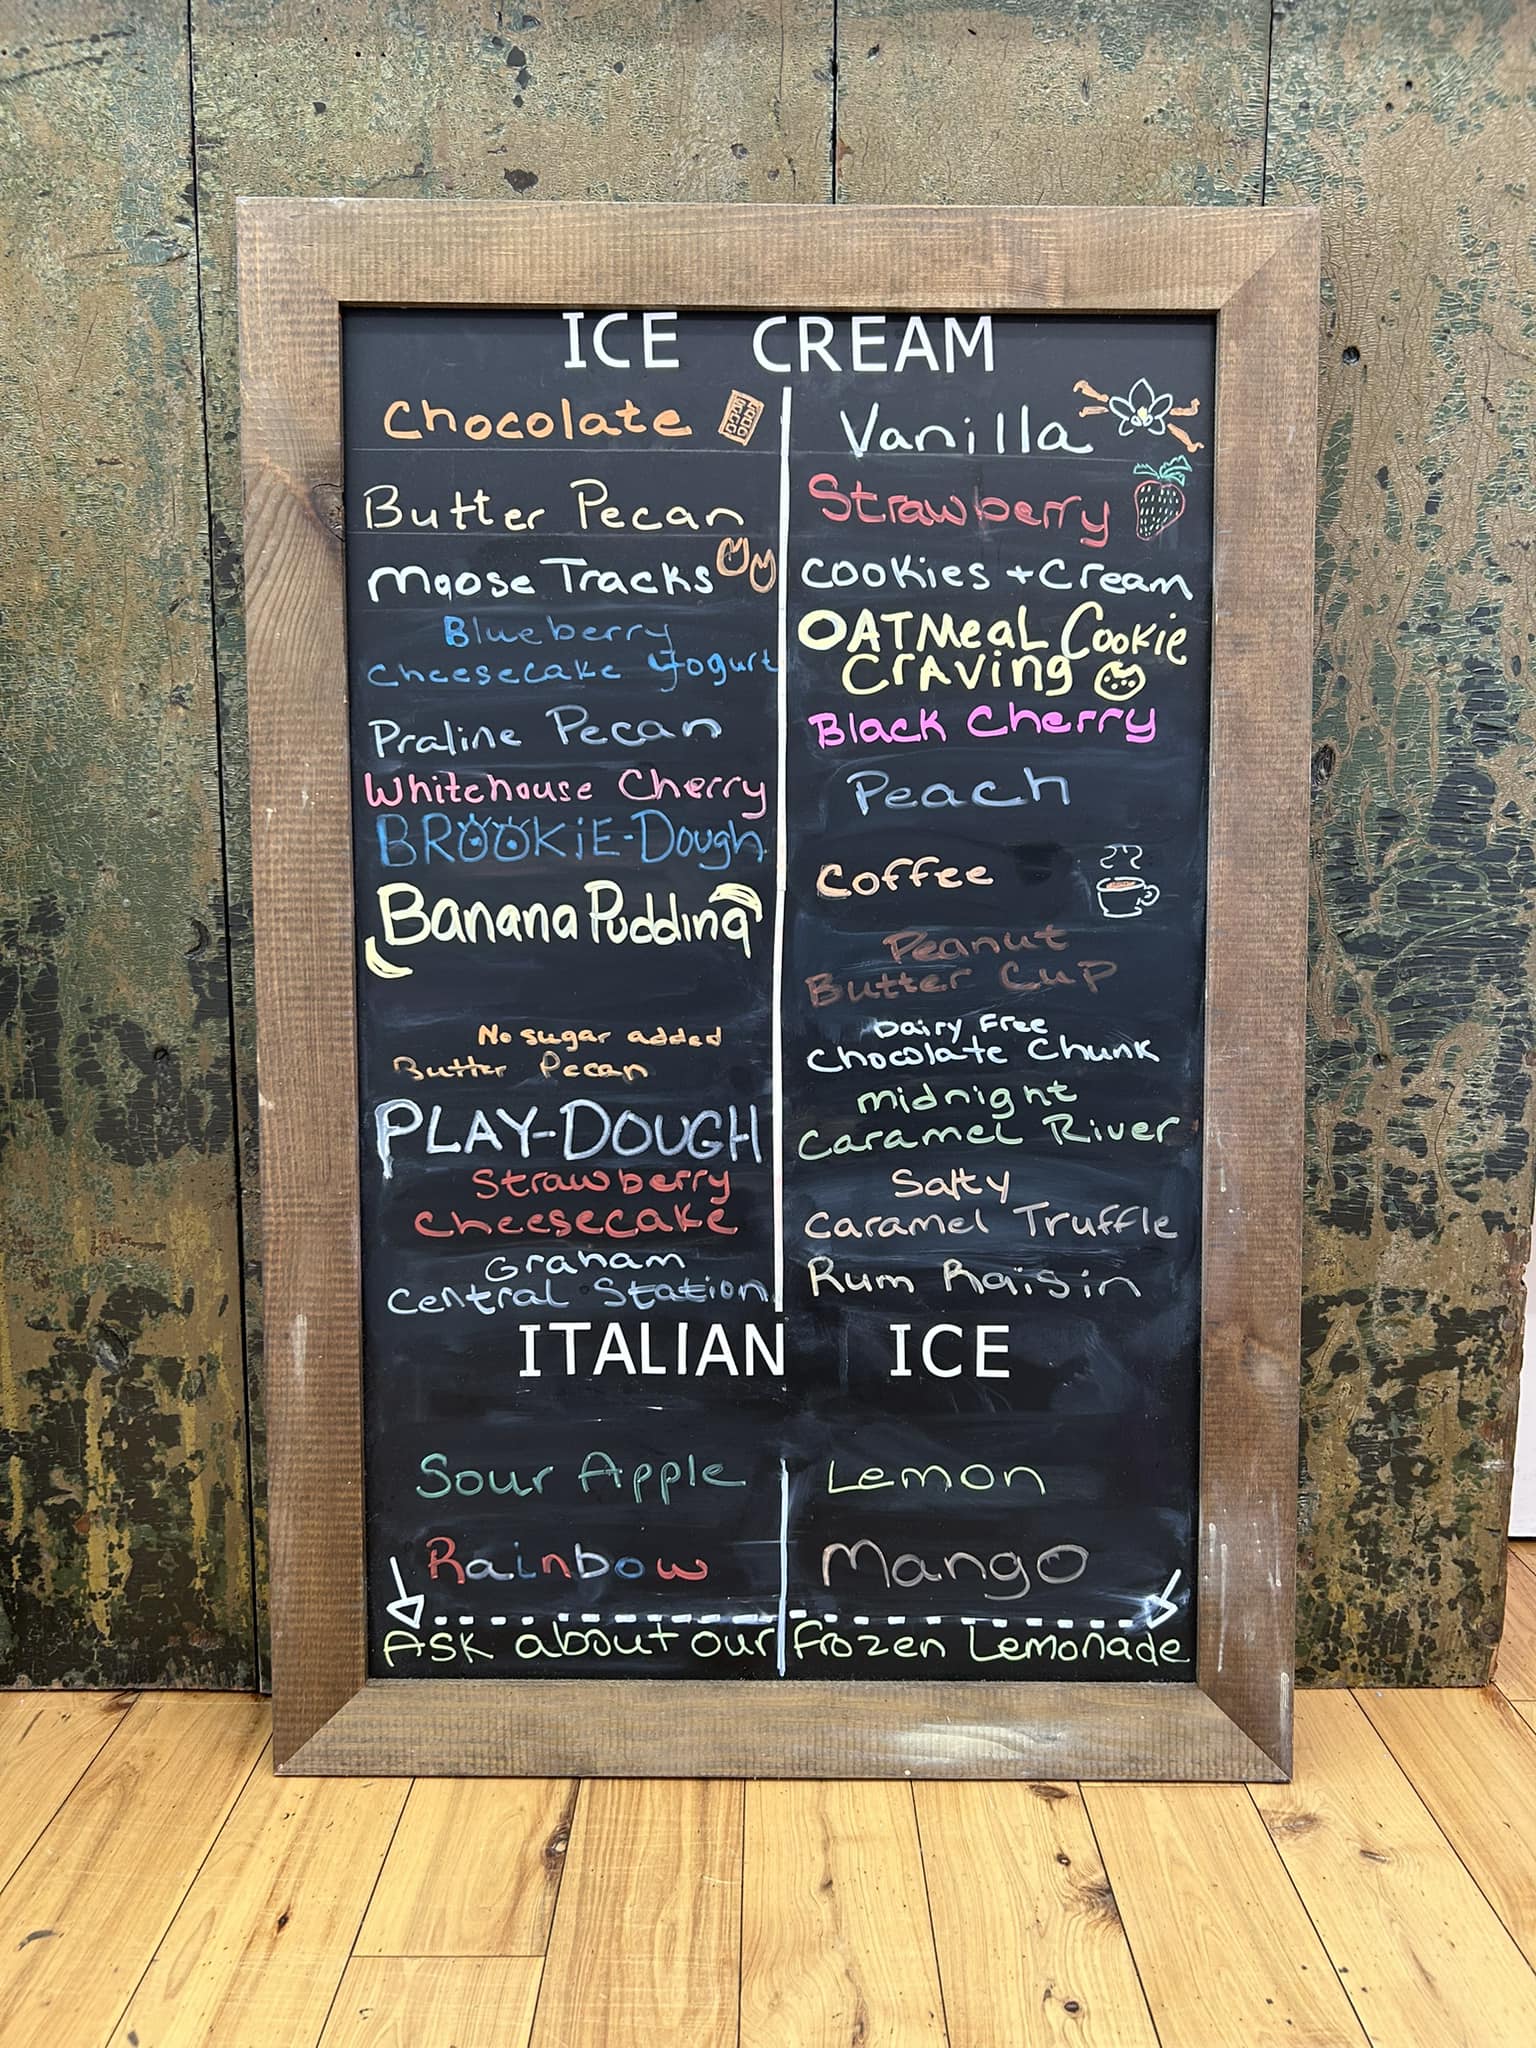 ICE CREAM
Chocolate
Butter Pecan
Moose Tracks
Blueberry
Cheesecake Yogurt
Praline Pecan
Whitehouse Cherry
BROOKiE-Dough
Banana Pudding
No sugar added
Butter Pecan
PLAY-DOUGH
Strawberry
Cheesecake
Graham
Central Station
Vanilla
Strawberry
Cookies + Cream
OATMeaL Cookie
CrAVing
Black Cherry
Peach
Coffee
Peanut
Butter Cup
Dairy Free
Chocolate Chunk
Midnight
Caramel River
Salty
Caramel Truffle
Rum Raisin
ITALIAN ICE
Sour Apple
Rainbow
Lemon
Mango
Ask about our Frozen Lemonade